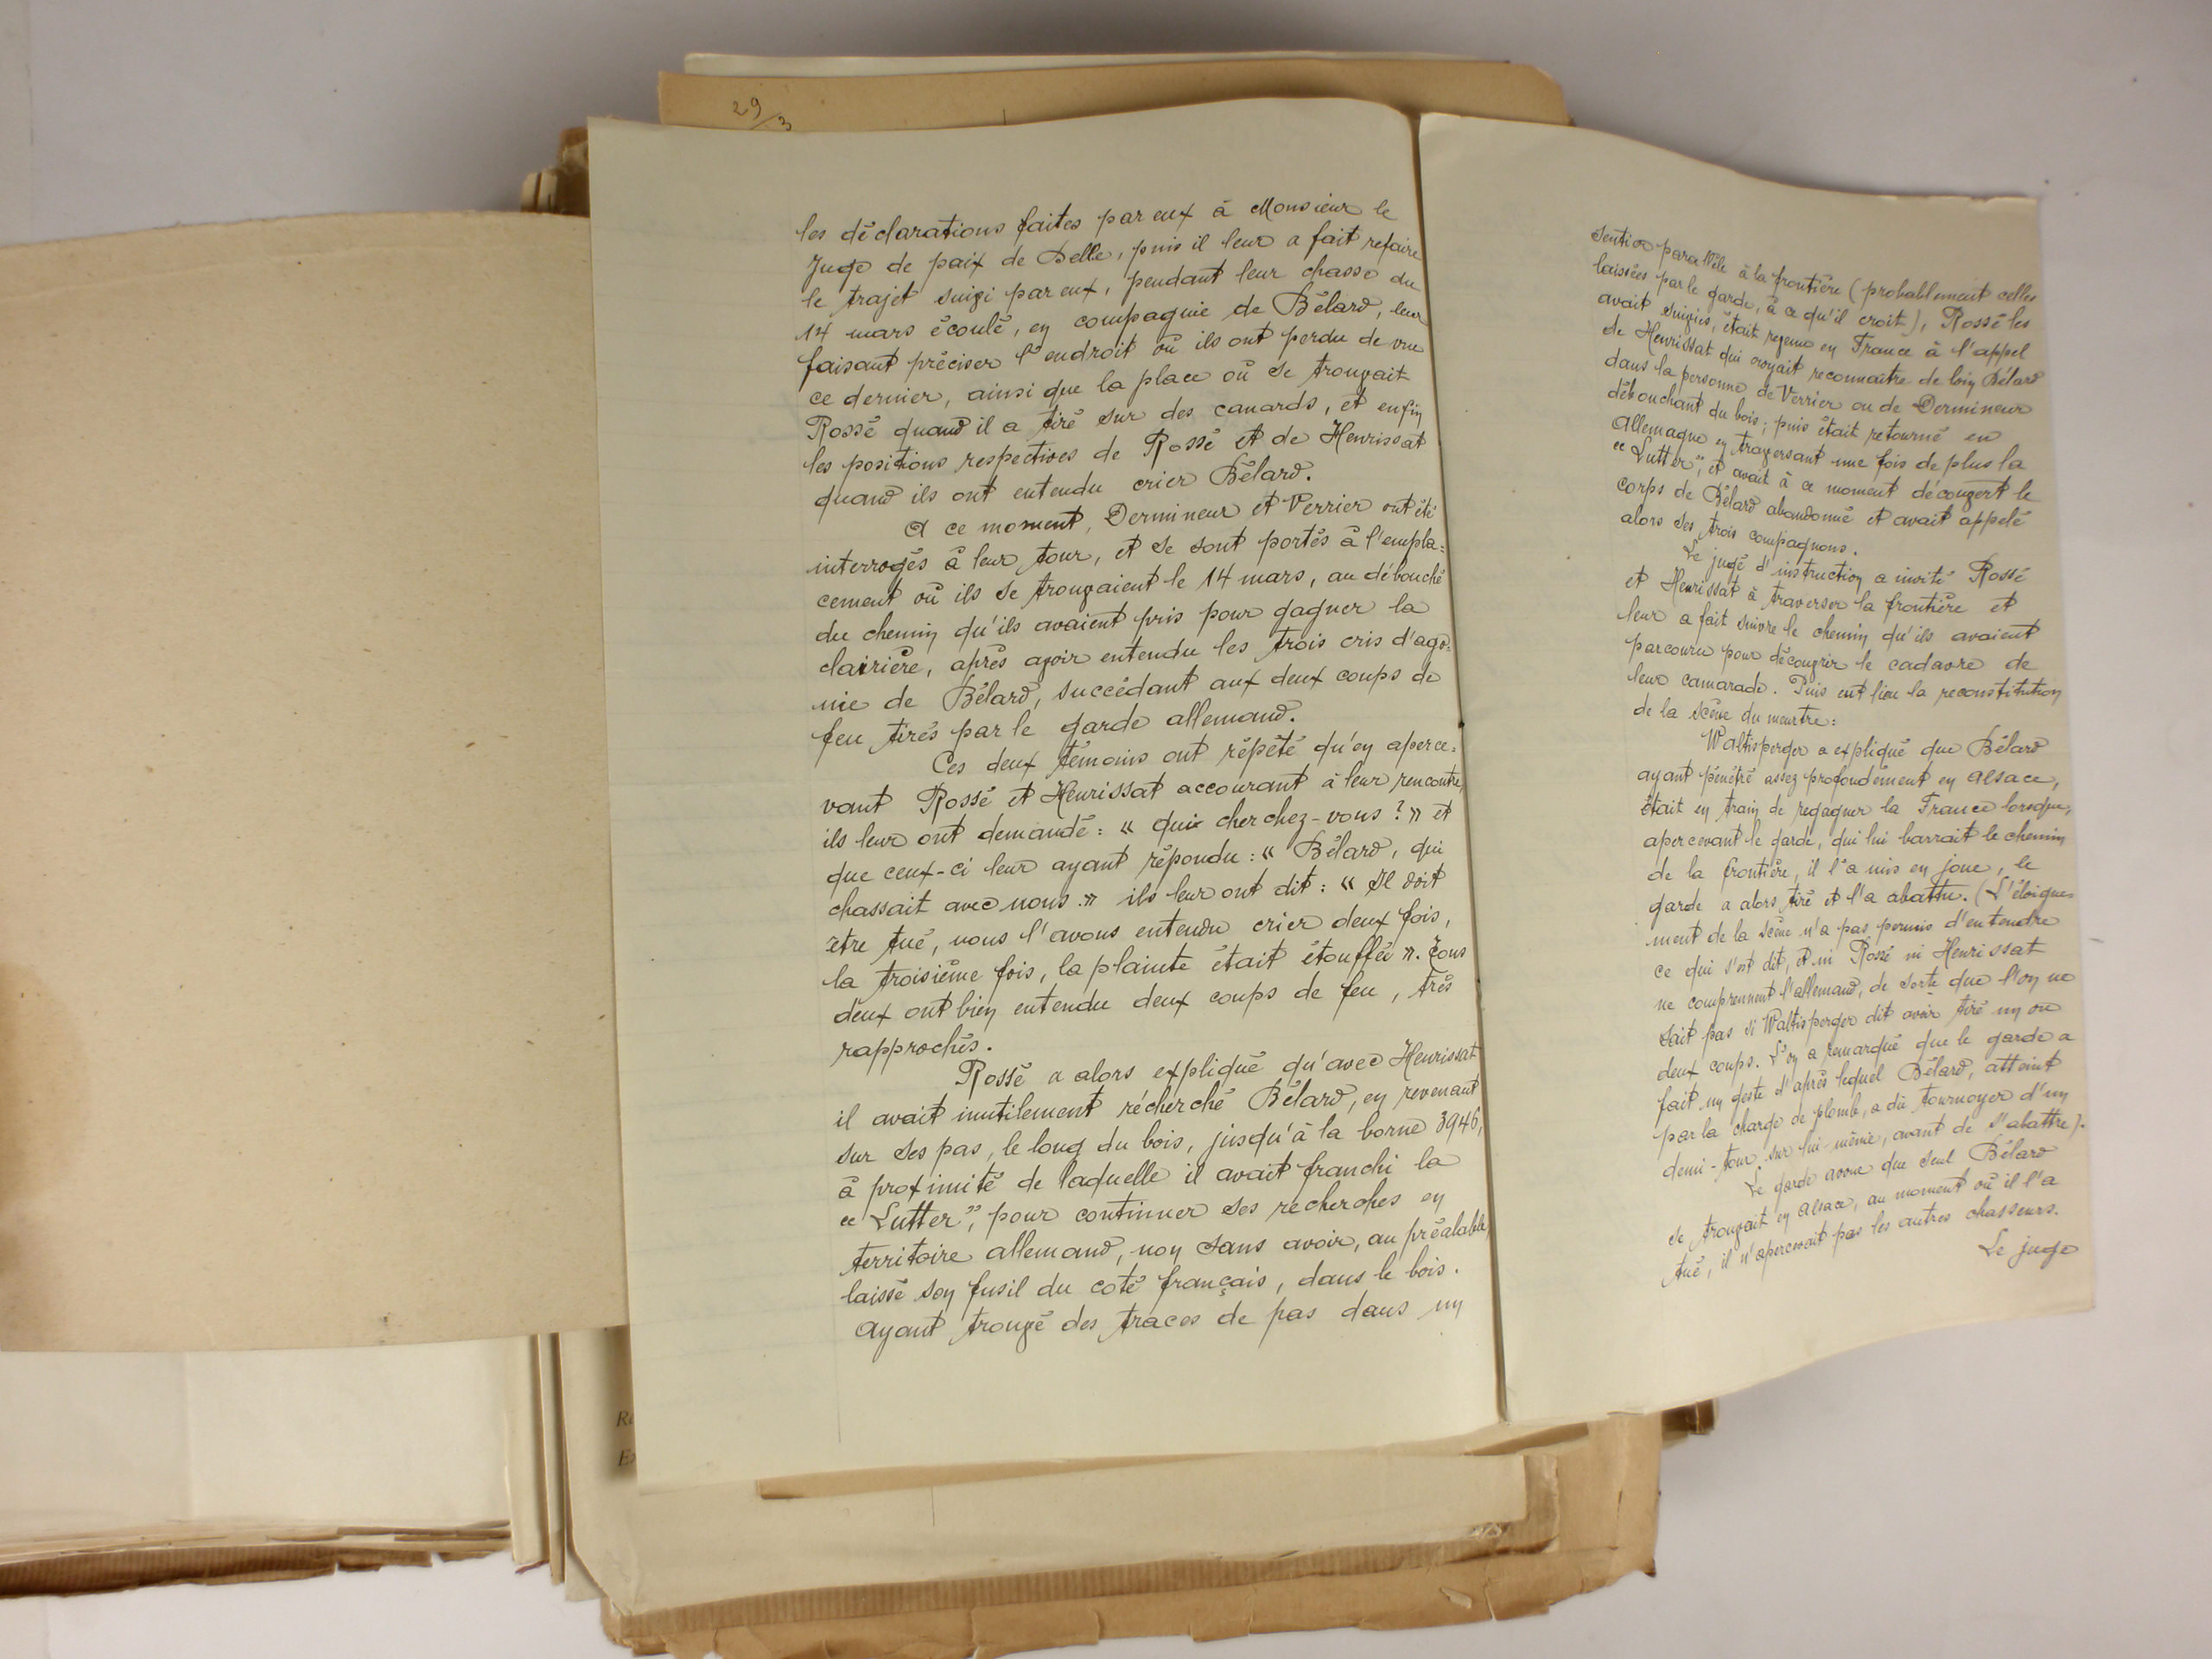 29/3
les déclarations faites par eux à Monsieur le
Juge de paix de Delle, puis il leur a fait refaire
le trajet suivi par eux, pendant leur chasse du
14 mars écoulé, en compagnie de Bélard, leur
faisant préciser l'endroit où ils ont perdu de vue
ce dernier, ainsi que la place où se trouvait
Rossé quand il a tiré sur des canards, et enfin
les positions respectives de Rossé et de Henrissat
quand ils ont entendu crier Bélard.
A ce moment, Dermineur et Verrier ont été
interrogés à leur tour, et se sont portés à l'empla=
cement où ils se trouvaient le 14 mars, au débouché
du chemin qu'ils avaient pris pour gagner la
clairière, après avoir entendu les trois cris d'ago=
nie de Bélard, succédant aux deux coups de
feu tirés par le garde allemand.
Ces deux témoins ont répété qu'en aperce=
vant Rossé et Henrissat accourant à leur rencontre,
ils leur ont demandé : « qui cherchez-vous ? » et
que ceux-ci leur ayant répondu : « Bélard, qui
chassait avec nous. » ils leur ont dit : « Il doit
être tué, nous l'avons entendu crier deux fois,
la troisième fois, la plainte était étouffée ». Tous
deux ont bien entendu deux coups de feu, très
rapprochés.
Rossé a alors expliqué qu'avec Henrissat
il avait inutilement récherché Bélard, en revenant
sur ses pas, le long du bois, jusqu'à la borne 3946,
à proximité de laquelle il avait franchi la
"Lutter", pour continuer ses recherches en
territoire allemand, non sans avoir, au préalable,
laissé son fusil du coté français, dans le bois.
Ayant trouvé des traces de pas dans un
sentier parallèle à la frontière (probablement celles
laissées par le garde, à ce qu'il croit), Rossé les
avait suivies, était revenu en France à l'appel
de Henrissat qui croyait reconnaître de loin Bélard
dans la personne de Verrier ou de Dermineur
débouchant du bois ; puis était retourné en
Allemagne en traversant une fois de plus la
"Lutter", et avait à ce moment découvert le
corps de Bélard abandonné et avait appelé
alors ses trois compagnons.
Le juge d'instruction a invité Rossé
et Henrissat à traverser la frontière et
leur a fait suivre le chemin qu'ils avaient
parcouru pour découvrir le cadavre de
leur camarade. Puis eut lieu la reconstitution
de la scène du meurtre :
Waltisperger a expliqué que Bélard
ayant pénétré assez profondément en Alsace,
était en train de regagner la France lorsque,
apercevant le garde, qui lui barrait le chemin
de la frontière, il l'a mis en joue, le
garde a alors tiré et l'a abattu. (L'éloigne=
ment de la scène n'a pas permis d'entendre
ce qui s'est dit, et ni Rossé ni Henrissat
ne comprennent l'allemand, de sorte que l'on ne
sait pas si Waltisperger dit avoir tiré un ou
deux coups. L'on a remarqué que le garde a
fait un geste d'après lequel Bélard, atteint
par la charge de plomb, a dû tournoyer d'un
demi-tour sur lui-même, avant de s'abattre).
Le garde avoue que seul Bélard
se trouvait en Alsace, au moment où il l'a
tué, il n'apercevait pas les autres chasseurs.
Le juge